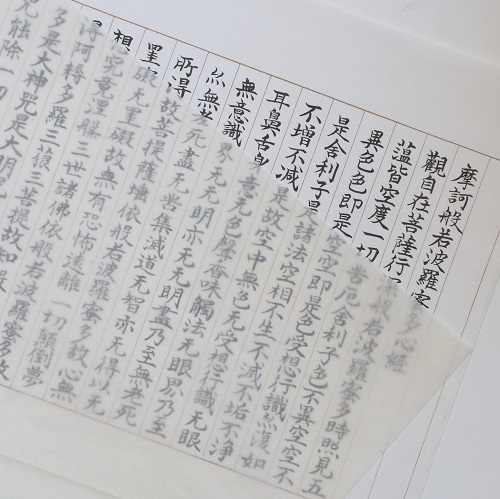 摩訶般若波羅蜜多心經
觀自在菩薩行般若波羅蜜多時照見五
蘊皆空度一切苦厄舍利子色不異空空不
異色色即是空空即是色受想行識亦復如
是舍利子是諸法空相不生不滅不垢不淨
不增不減是故空中無色无受想行識无眼
耳鼻舌身意无色聲香味觸法无眼界乃至
無意識界无无明亦无无明盡乃至無老死
亦無老死盡无苦集滅道无智亦无得以无
所得故菩提薩埵依般若波羅蜜多故心無
罣礙无罣礙故無有恐怖遠離一切顛倒夢
想究竟涅槃三世諸佛依般若波羅蜜多故
得阿耨多羅三藐三菩提故知般
多是大神咒是大明
咒能除一切